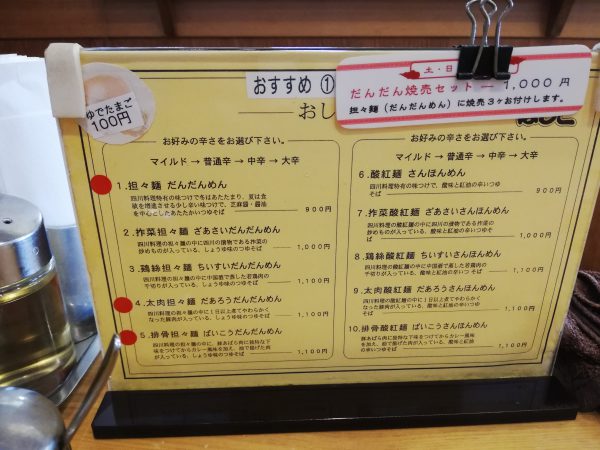 おすすめ ①
土・日
だんだん焼売セット ー 1,000 円
担々麺(だんだんめん)に焼売3ヶお付けします。
ゆでたまご
100円
おし
お好みの辛さをお選び下さい。
マイルド → 普通辛 → 中辛 → 大辛
1.担々麺 だんだんめん
900円
2.搾菜担々麺 ざあさいだんだんめん
四川料理の担々麺の中に四川の漬物である搾菜の
炒めものが入っている、しょうゆ味のつゆそば
1,000円
3.鶏絲担々麺 ちいすいだんだんめん
四川料理の担々麺の中に中国酒で蒸した若鶏肉の
千切りが入っている、しょうゆ味のつゆそば
1,100円
4.太肉担々麺 だあろうだんだんめん
四川料理の担々麺の中に1日以上煮てやわらかく
なった豚肉が入っている、しょうゆ味のつゆそば
1,100円
5.排骨担々麺 ぱいこうだんだんめん
四川料理の担々麺の中に、豚あばら肉に独特な下
味をつけてからカレー風味を加え、油で揚げた肉
が入っている、しょうゆ味のつゆそば
1,100円
お好みの辛さをお選び下さい。
マイルド → 普通辛 → 中辛 → 大辛
6.酸紅麺 さんほんめん
四川料理特有の味つけで、酸味と紅油の辛いつゆ
そば
900円
7.搾菜酸紅麺 ざあさいさんほんめん
四川料理の酸紅麺の中に四川の漬物である搾菜の
炒めものが入っている、酸味と紅油の辛いつゆそ
ば
1,000円
8.鶏絲酸紅麺 ちいすいさんほんめん
四川料理の酸紅麺の中に中国酒で蒸した若鶏肉の
千切りが入っている、酸味と紅油の辛いつゆ そば
1,100円
9.太肉酸紅麺 だあろうさんほんめん
四川料理の酸紅麺の中に1日以上煮てやわらかく
なった豚肉が入っている、酸味と紅油の辛いつゆ
そば
1,100円
10.排骨酸紅麺 ぱいこうさんほんめん
豚あばら肉に独特な下味をつけてからカレー風味
を加え、油で揚げた肉が入っている、酸味と紅油
の辛いつゆそば
1,100円